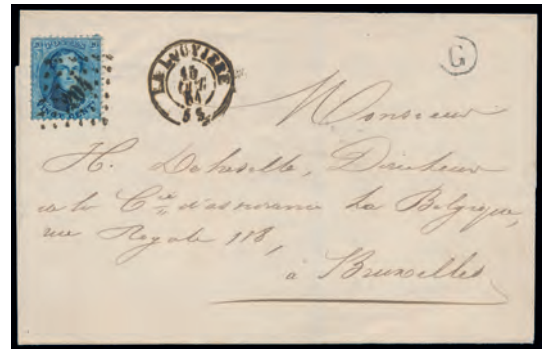 LA LOUVIERE
10
G
Monsieur
H. Directeur
de la Cie d'assurance La Belgique,
rue Royale 118,
à Bruxelles